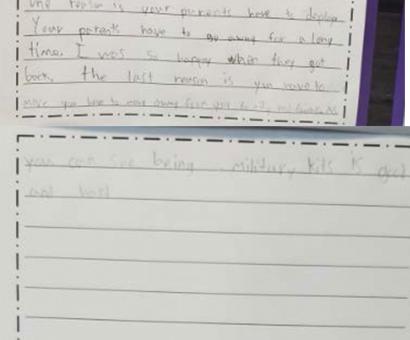 one reason is your parents have to deploy
Your parents have to go away for a long
time. I was so happy when they got
back. the last reason is you have to
move you have to move away from your family and friends. As
you can see being military kids is good
and hard